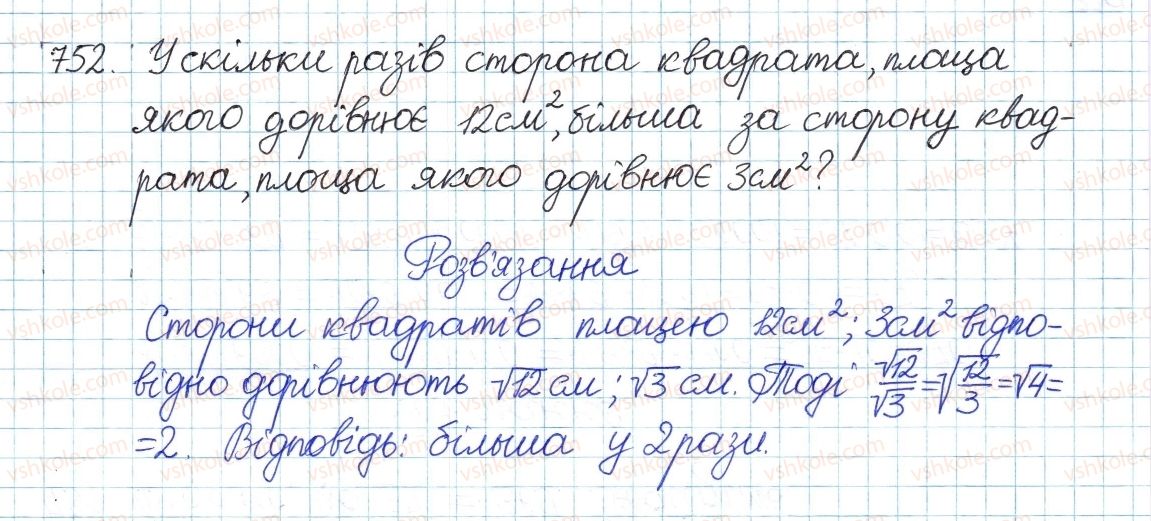 752. У скільки разів сторона квадрата, площа
якого дорівнює 12см², більша за сторону квад-
рата, площа якого дорівнює 3см²?
Розв'язання
Сторони квадратів площею 12см²; 3см² відпо-
відно дорівнюють √12 см; √3 см. Тоді √12/√3 = √(12/3) = √4 =
=2. Відповідь: більша у 2 рази.